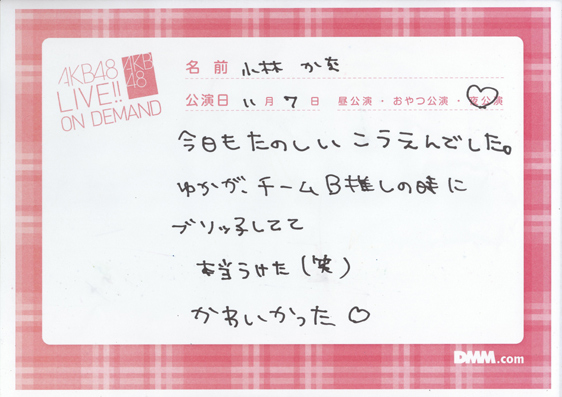 AKB48
LIVE!!
ON DEMAND
AKB
48
名前 小林 かな
公演日 11月7日 昼公演・おやつ公演・夜公演
今日もたのしいこうえんでした。
ゆかが、チームB推しの時に
ブリッ子してて
本当うけた(笑)
かわいかった♡
DMM.com